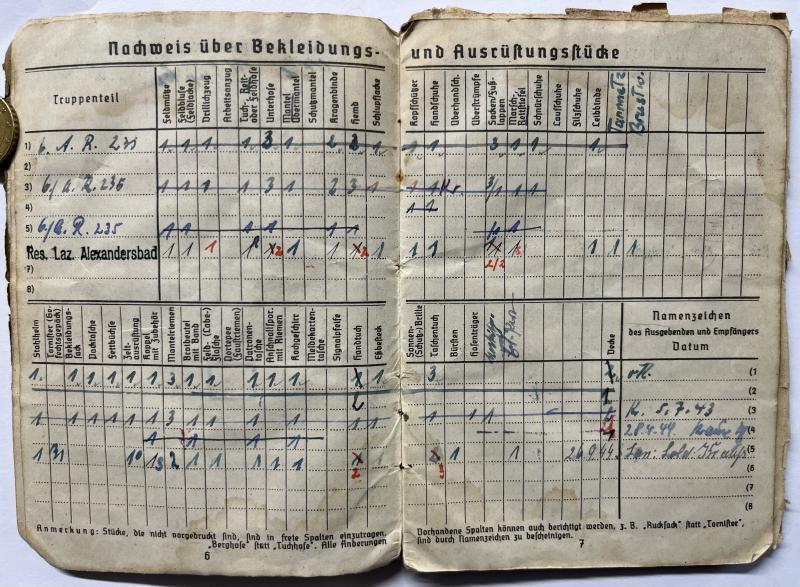 Nachweis über Bekleidungs- und Ausrüstungsstücke
Truppenteil
Feldmütze
Feldbluse (Feldjacke)
Drillichzeug
Arbeitsanzug
Tuch-, Reit- oder Feldhose
Unterhose
Mantel Übermantel
Schutzmantel
Kragenbinde
Hemd
Schlupfjacke
Kopfschützer
Handschuhe
Überhandsch.
Überstrümpfe
Socken/Fuß-lappen
Marsch-, Reitstiefel
Schnürschuhe
Laufschuhe
Filzschuhe
Leibbinde
1) 6. A. R. 235 1 1 1 1 3 1 2 2 1 1 1 3 1 1 1
2)
3) 6/A. R. 235 1 1 1 1 3 1 2 3 1 1 1 1 1
4) 1 1
5) 6/A. R. 235 1 1 1 1 1 1 1
Res. Laz. Alexandersbad 1 1 1 1 2 1 1 2 1 1 1 2/2 1 1 1 1
7)
8)
Stahlhelm
Tornister (Ge-fechtsgepäck)
Bekleidungs-sack
Packtasche
Fettbüchse
Zelt-ausrüstung
Koppel mit Zubehör
Mantelriemen
Brotbeutel mit Band
Feld- (Labe-) Flasche
Dortepee (Faustriemen)
Patronen-tasche
Anschnallspor. mit Riemen
Kochgeschirr
Meldekarten-tasche
Signalpfeife
Handtuch
Eßbesteck
Sonnen-(Schutz-) Brille
Taschentuch
Bürsten
Hosenträger
Decke
Namenzeichen
des Ausgebenden und Empfängers
Datum
1 1 1 1 1 1 1 3 1 1 1 1 1 1 3 (1
2 1 (2
1 1 1 1 1 1 1 3 1 1 1 1 1 1 1 1 1 K. 5.7.43 (3
1 1 1 1 28.4.44 (4
1 1 2 1 1 1 1 1 2 1 1 26.9.44. (5
(6
(7
(8
Anmerkung: Stücke, die nicht vorgedruckt sind, sind in freie Spalten einzutragen.
„Berghose" statt „Tuchhose". Alle Änderungen
6
Vorhandene Spalten können auch berichtigt werden, z. B. „Rucksack" statt „Tornister",
sind durch Namenzeichen zu bescheinigen.
7